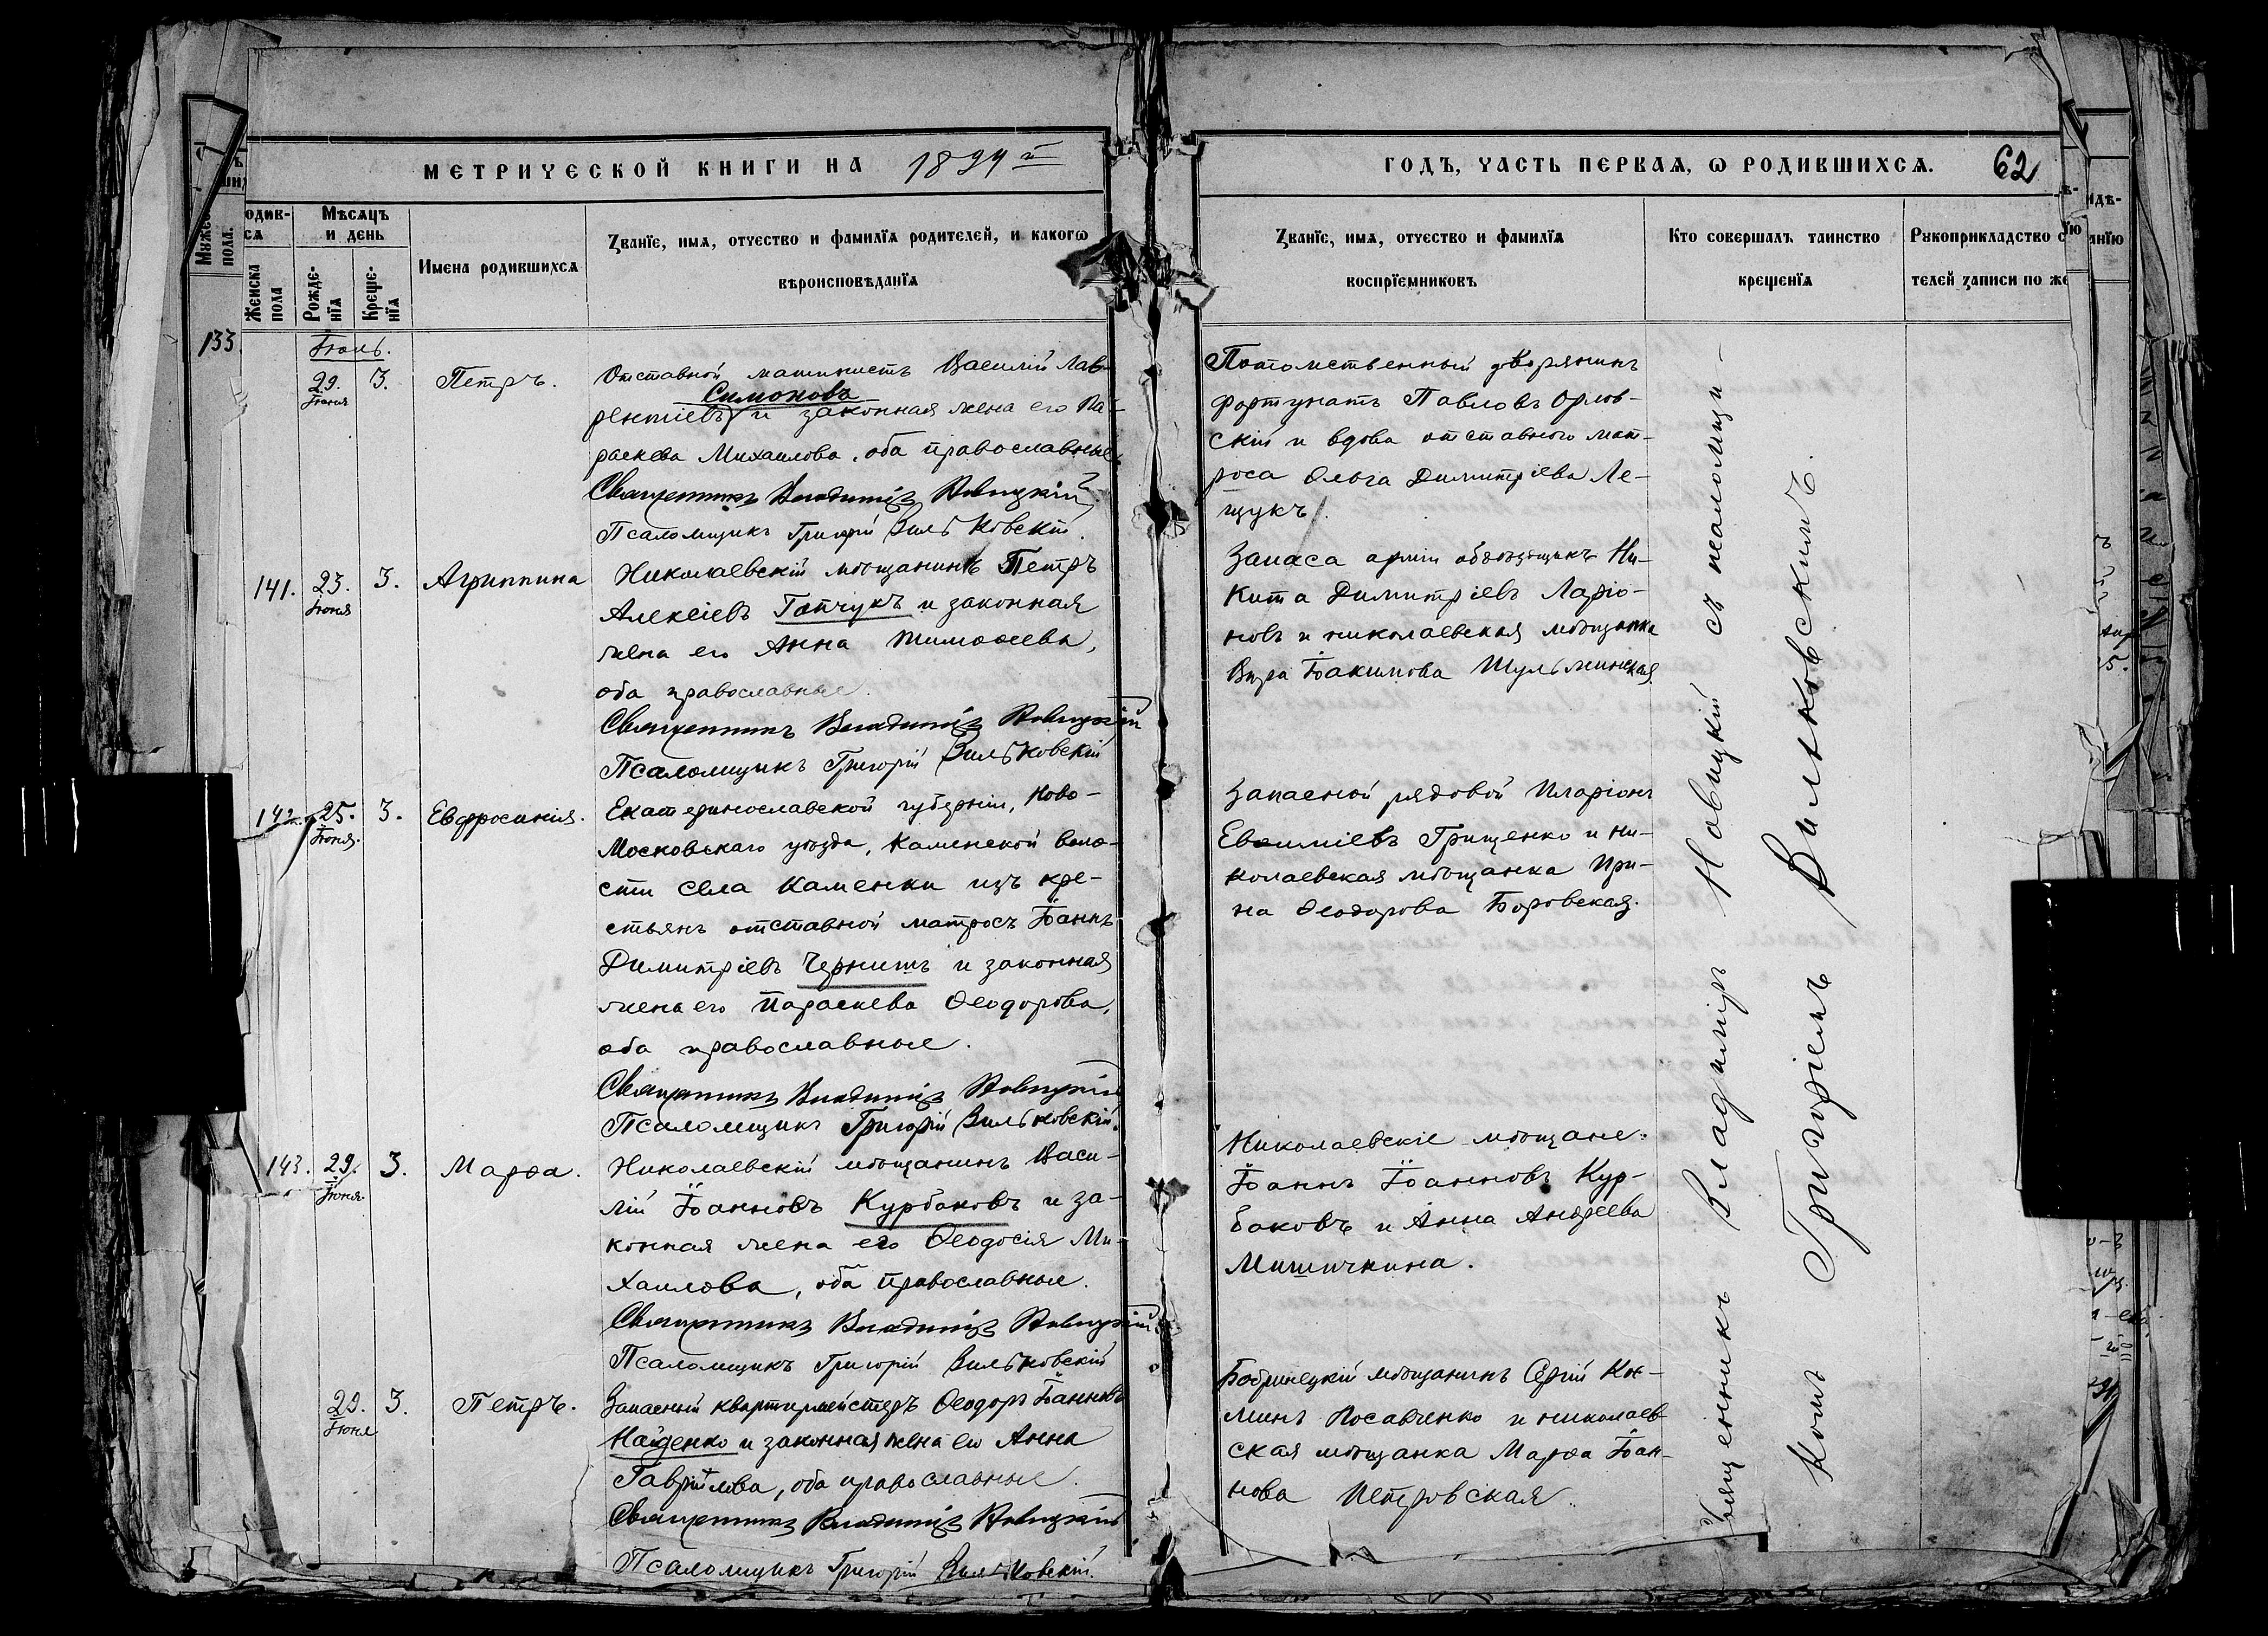 МЕТРИЧЕСКОЙ КНИГИ НА 1894й
ГОДЪ, ЧАСТЬ ПЕРВАЯ, Ѡ РОДИВШИХСЯ. 62
Мужеска пола.
Женска пола
Мѣсяцъ и день
Рожденія
Крещенія
Имена родившихся
Званїе, имя, отчество и фамилїя родителей, и какогѡ
вѣроисповѣданїя
Званїе, имя, отчество и фамилїя
воспрїемниковъ
Кто совершалъ таинство
крещенїя
Рукоприкладство с
телей записи по же
133.
Іюль.
29. Іюня 3. Петръ.
Отставной машинистъ Василій Лав-
Симоновъ
рентіевъ и законная жена его Па-
раскева Михаилова, оба православные.
Священникъ Владиміръ Новицкій
Псаломщикъ Григорій Вильковскій.
Потомственный дворянинъ
Фортунатъ Павловъ Орлов-
скій и вдова отставного мат-
роса Ольга Димитріева Ле-
щукъ.
141. 23. Іюня 3. Агриппина
Николаевскій мѣщанинъ Петръ
Алексіевъ Гапчукъ и законная
жена его Анна Тимоѳеева,
оба православные.
Священникъ Владиміръ Новицкій
Псаломщикъ Григорій Вильковскій
Запаса арміи объѣздчикъ Ни-
кита Димитріевъ Ларіо-
новъ и николаевская мѣщанка
Вѣра Іоакимова Шульминская.
142. 25. Іюня. 3. Евфросинія.
Екатеринославской губерніи, Ново-
московскаго уѣзда, Каменской воло-
сти села Каменки изъ кре-
стьянъ отставной матросъ Іоаннъ
Димитріевъ Чернишъ и законная
жена его Параскева Ѳеодорова,
оба православные.
Священникъ Владиміръ Новицкій
Псаломщикъ Григорій Вильковскій.
Запасной рядовой Иларіонъ
Евѳиміевъ Грищенко и ни-
колаевская мѣщанка Ири-
на Ѳеодорова Боровская.
143. 29. Іюня. 3. Марѳа.
Николаевскій мѣщанинъ Васи-
лій Іоанновъ Курбаковъ и за-
конная жена его Ѳеодосія Ми-
хаилова, оба православные.
Священникъ Владиміръ Новицкій
Псаломщикъ Григорій Вильковскій
Николаевскіе мѣщане:
Іоаннъ Іоанновъ Кур-
баковъ и Анна Андреева
Мишичкина.
29. Іюня 3. Петръ.
Запасный квартирмейстеръ Ѳеодоръ Іоанновъ
Найденко и законная жена его Анна
Гавріилова, оба православные.
Священникъ Владиміръ Новицкій
Псаломщикъ Григорій Вильковскій.
Бобринецкій мѣщанинъ Сергій Коз-
минъ Косавченко и николаев-
ская мѣщанка Марѳа Іоан-
нова Петровская.
Священникъ Владиміръ Новицкій съ псаломщи-
комъ Григоріемъ Вильковскимъ.